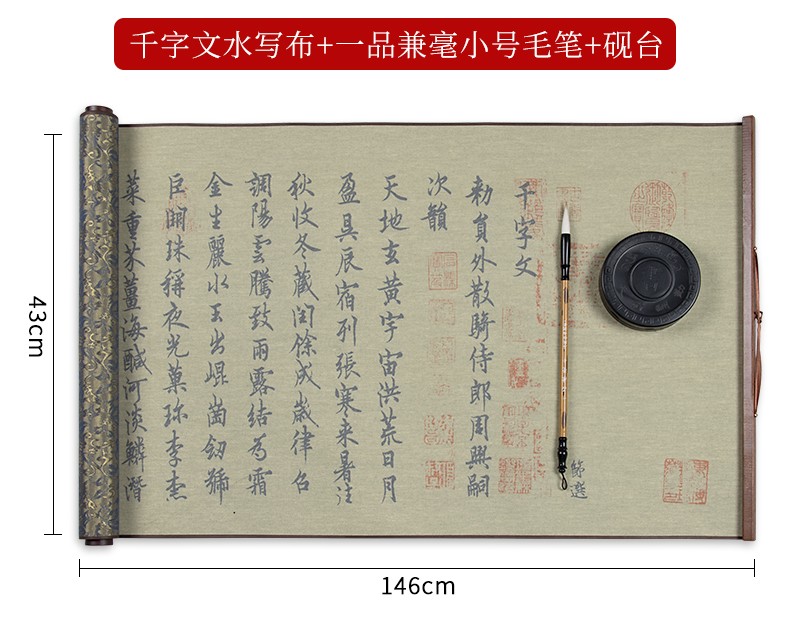 千字文水写布+一品兼毫小号毛笔+砚台
千字文
勅員外散騎侍郎周興嗣
次韻
天地玄黄宇宙洪荒日月
盈昃辰宿列張寒来暑往
秋收冬藏閏餘成歲律召
調陽雲騰致雨露結為霜
金生麗水玉出崐崗劒號
巨闕珠稱夜光菓珎李柰
菜重芥薑海鹹河淡鱗潛
節選
43cm
146cm